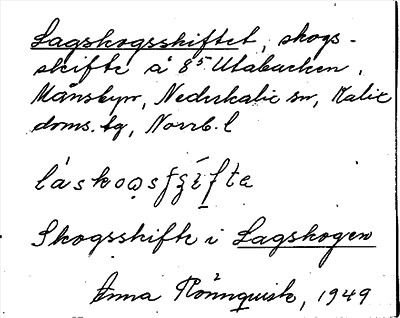 Lagskogsskiftet, skogs-
skifte å 8⁵ Utabacken,
Månsbyn, Nederkalix sn, Kalix
doms. tg, Norrb. l
Skogsskifte i Lagskogen
Anna Rönnquist, 1949